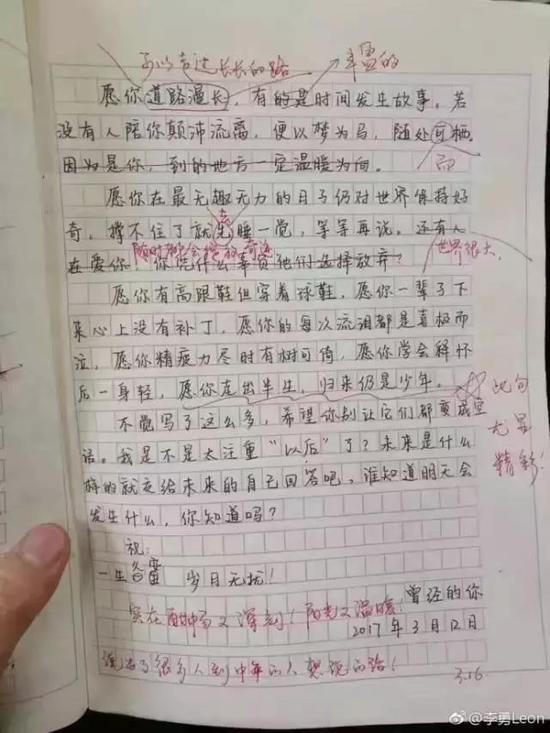 可以走过长长的路 丰富的
愿你道路漫长,有的是时间发生故事。若
没有人陪你颠沛流离,便以梦为马,随处可栖。
因为是你,到的地方一定温暖为向。
而
愿你在最无趣无力的日子仍对世界保持好
奇,撑不住了就先睡一觉,等等再说。还有人
随时都会 奇迹
在爱你,你凭什么辜负他们选择放弃?
世界很大
愿你有高跟鞋但穿着球鞋,愿你一辈子下
来心上没有补丁,愿你的每次流泪都是喜极而
泣,愿你精疲力尽时有树可倚,愿你学会释怀
后一身轻,愿你走出半生,归来仍是少年。
此句
尤显
精彩!
不觉写了这么多,希望你别让它们都变成空
话。我是不是太注重“以后”了?未来是什么
样的就交给未来的自己回答吧,谁知道明天会
发生什么,你知道吗?
祝:
一生 岁月无扰!
曾经的你
实在酣畅又深刻!阳光又温暖!
2017年3月12日
说出了很多人到中年的人想说的话!
3.16
@李勇Leon